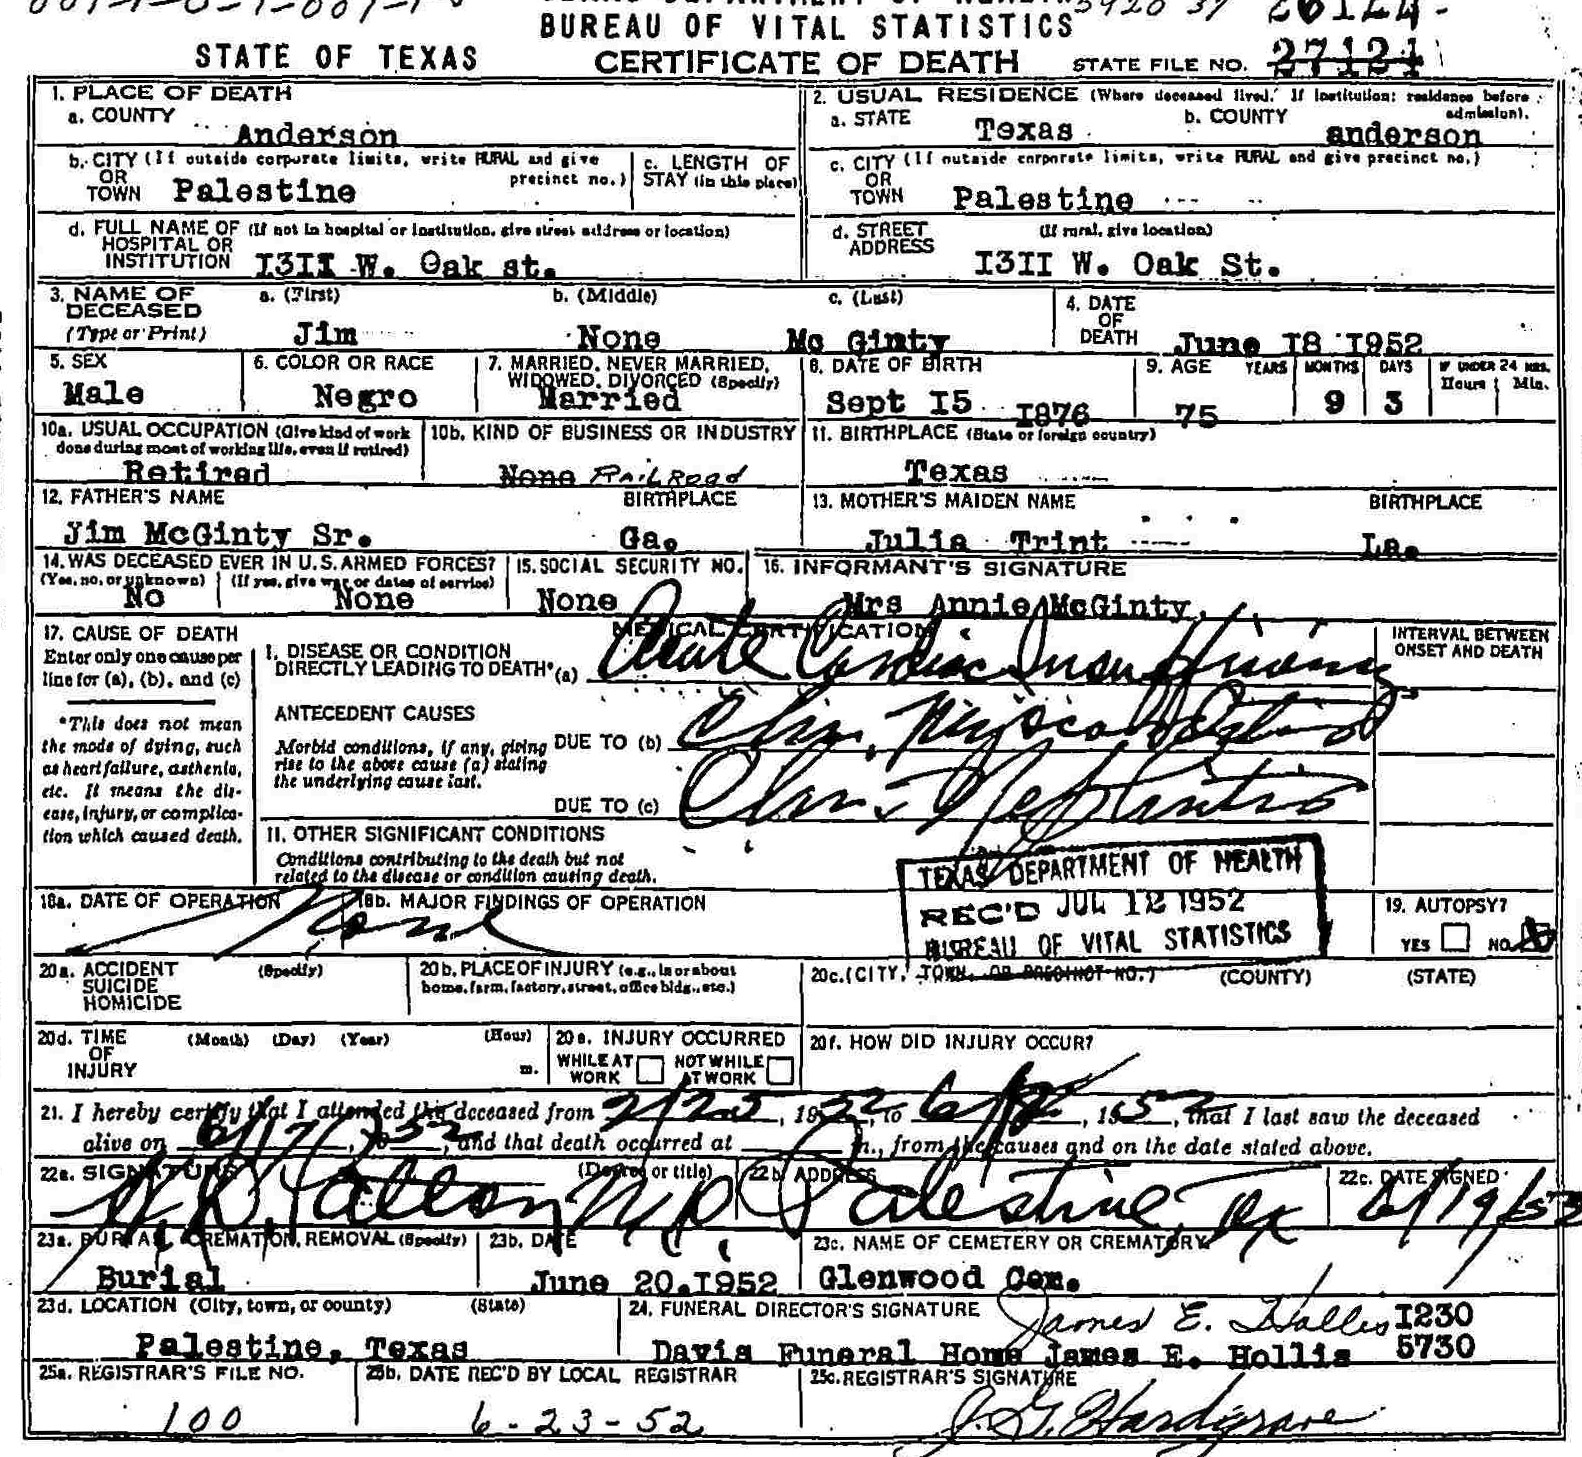 BUREAU OF VITAL STATISTICS
STATE OF TEXAS CERTIFICATE OF DEATH STATE FILE NO. 27124
1. PLACE OF DEATH
a. COUNTY Anderson
2. USUAL RESIDENCE (Where deceased lived. If institution: residence before admission).
a. STATE Texas b. COUNTY anderson
b. CITY (If outside corporate limits, write RURAL and give precinct no.) OR TOWN Palestine
c. LENGTH OF STAY (in this place)
c. CITY (If outside corporate limits, write RURAL and give precinct no.) OR TOWN Palestine
d. FULL NAME OF (If not in hospital or institution, give street address or location) HOSPITAL OR INSTITUTION I3II W. Oak st.
d. STREET ADDRESS (If rural, give location) I3II W. Oak St.
3. NAME OF DECEASED (Type or Print)
a. (First) Jim b. (Middle) None c. (Last) Mc Ginty
4. DATE OF DEATH June I8 I952
5. SEX Male
6. COLOR OR RACE Negro
7. MARRIED, NEVER MARRIED, WIDOWED, DIVORCED (Specify) Married
8. DATE OF BIRTH Sept I5 I876
9. AGE YEARS 75 MONTHS 9 DAYS 3 IF UNDER 24 HRS. Hours Min.
10a. USUAL OCCUPATION (Give kind of work done during most of working life, even if retired) Retired
10b. KIND OF BUSINESS OR INDUSTRY None RailRoad
11. BIRTHPLACE (State or foreign country) Texas
12. FATHER'S NAME Jim McGinty Sr. BIRTHPLACE Ga.
13. MOTHER'S MAIDEN NAME Julia Trint BIRTHPLACE La.
14. WAS DECEASED EVER IN U.S. ARMED FORCES? (Yes, no, or unknown) No (If yes, give war or dates of service) None
15. SOCIAL SECURITY NO. None
16. INFORMANT'S SIGNATURE Mrs Annie McGinty.
17. CAUSE OF DEATH
Enter only one cause per line for (a), (b), and (c)
*This does not mean the mode of dying, such as heart failure, asthenia, etc. It means the disease, injury, or complication which caused death.
MEDICAL CERTIFICATION
INTERVAL BETWEEN ONSET AND DEATH
I. DISEASE OR CONDITION DIRECTLY LEADING TO DEATH* (a) Acute Cardiac Insufficiency
ANTECEDENT CAUSES
Morbid conditions, if any, giving rise to the above cause (a) stating the underlying cause last.
DUE TO (b) Chr.
DUE TO (c) Chr. Nephritis
11. OTHER SIGNIFICANT CONDITIONS
Conditions contributing to the death but not related to the disease or condition causing death.
TEXAS DEPARTMENT OF HEALTH
REC'D JUL 12 1952
BUREAU OF VITAL STATISTICS
18a. DATE OF OPERATION None
18b. MAJOR FINDINGS OF OPERATION
19. AUTOPSY? YES NO
20a. ACCIDENT SUICIDE HOMICIDE (Specify)
20b. PLACE OF INJURY (e.g., in or about home, farm, factory, street, office bldg., etc.)
20c. (CITY, TOWN, OR PRECINCT NO.) (COUNTY) (STATE)
20d. TIME OF INJURY (Month) (Day) (Year) (Hour) m.
20e. INJURY OCCURRED WHILE AT WORK NOT WHILE AT WORK
20f. HOW DID INJURY OCCUR?
21. I hereby certify that I attended the deceased from 2/25, 1952 to 6/18, 1952, that I last saw the deceased
alive on 6/17, 1952, and that death occurred at m., from the causes and on the date stated above.
22a. SIGNATURE (Degree or title) M.D.
22b. ADDRESS Palestine, Tex
22c. DATE SIGNED 6/19/52
23a. BURIAL, CREMATION, REMOVAL (Specify) Burial
23b. DATE June 20.I952
23c. NAME OF CEMETERY OR CREMATORY Glenwood Cem.
23d. LOCATION (City, town, or county) (State) Palestine, Texas
24. FUNERAL DIRECTOR'S SIGNATURE James E. Hollis I230
Davis Funeral Home James E. Hollis 5730
25a. REGISTRAR'S FILE NO. 100
25b. DATE REC'D BY LOCAL REGISTRAR 6-23-52
25c. REGISTRAR'S SIGNATURE J. G. Hardgrave